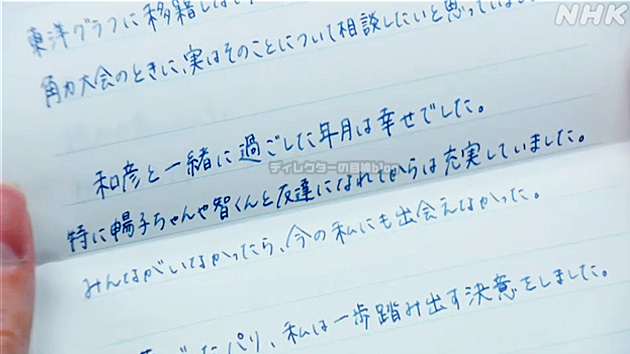 NHK
東洋グラフに移籍しま
角力大会のときに、実はそのことについて相談したいと思っていまし
和彦と一緒に過ごした年月は幸せでした。
ディレクターの目線blog
特に暢子ちゃんや智くんと友達になれてからは充実していました。
みんながいなかったら、今の私にも出会えなかった。
パリ、私は一歩踏み出す決意をしました。